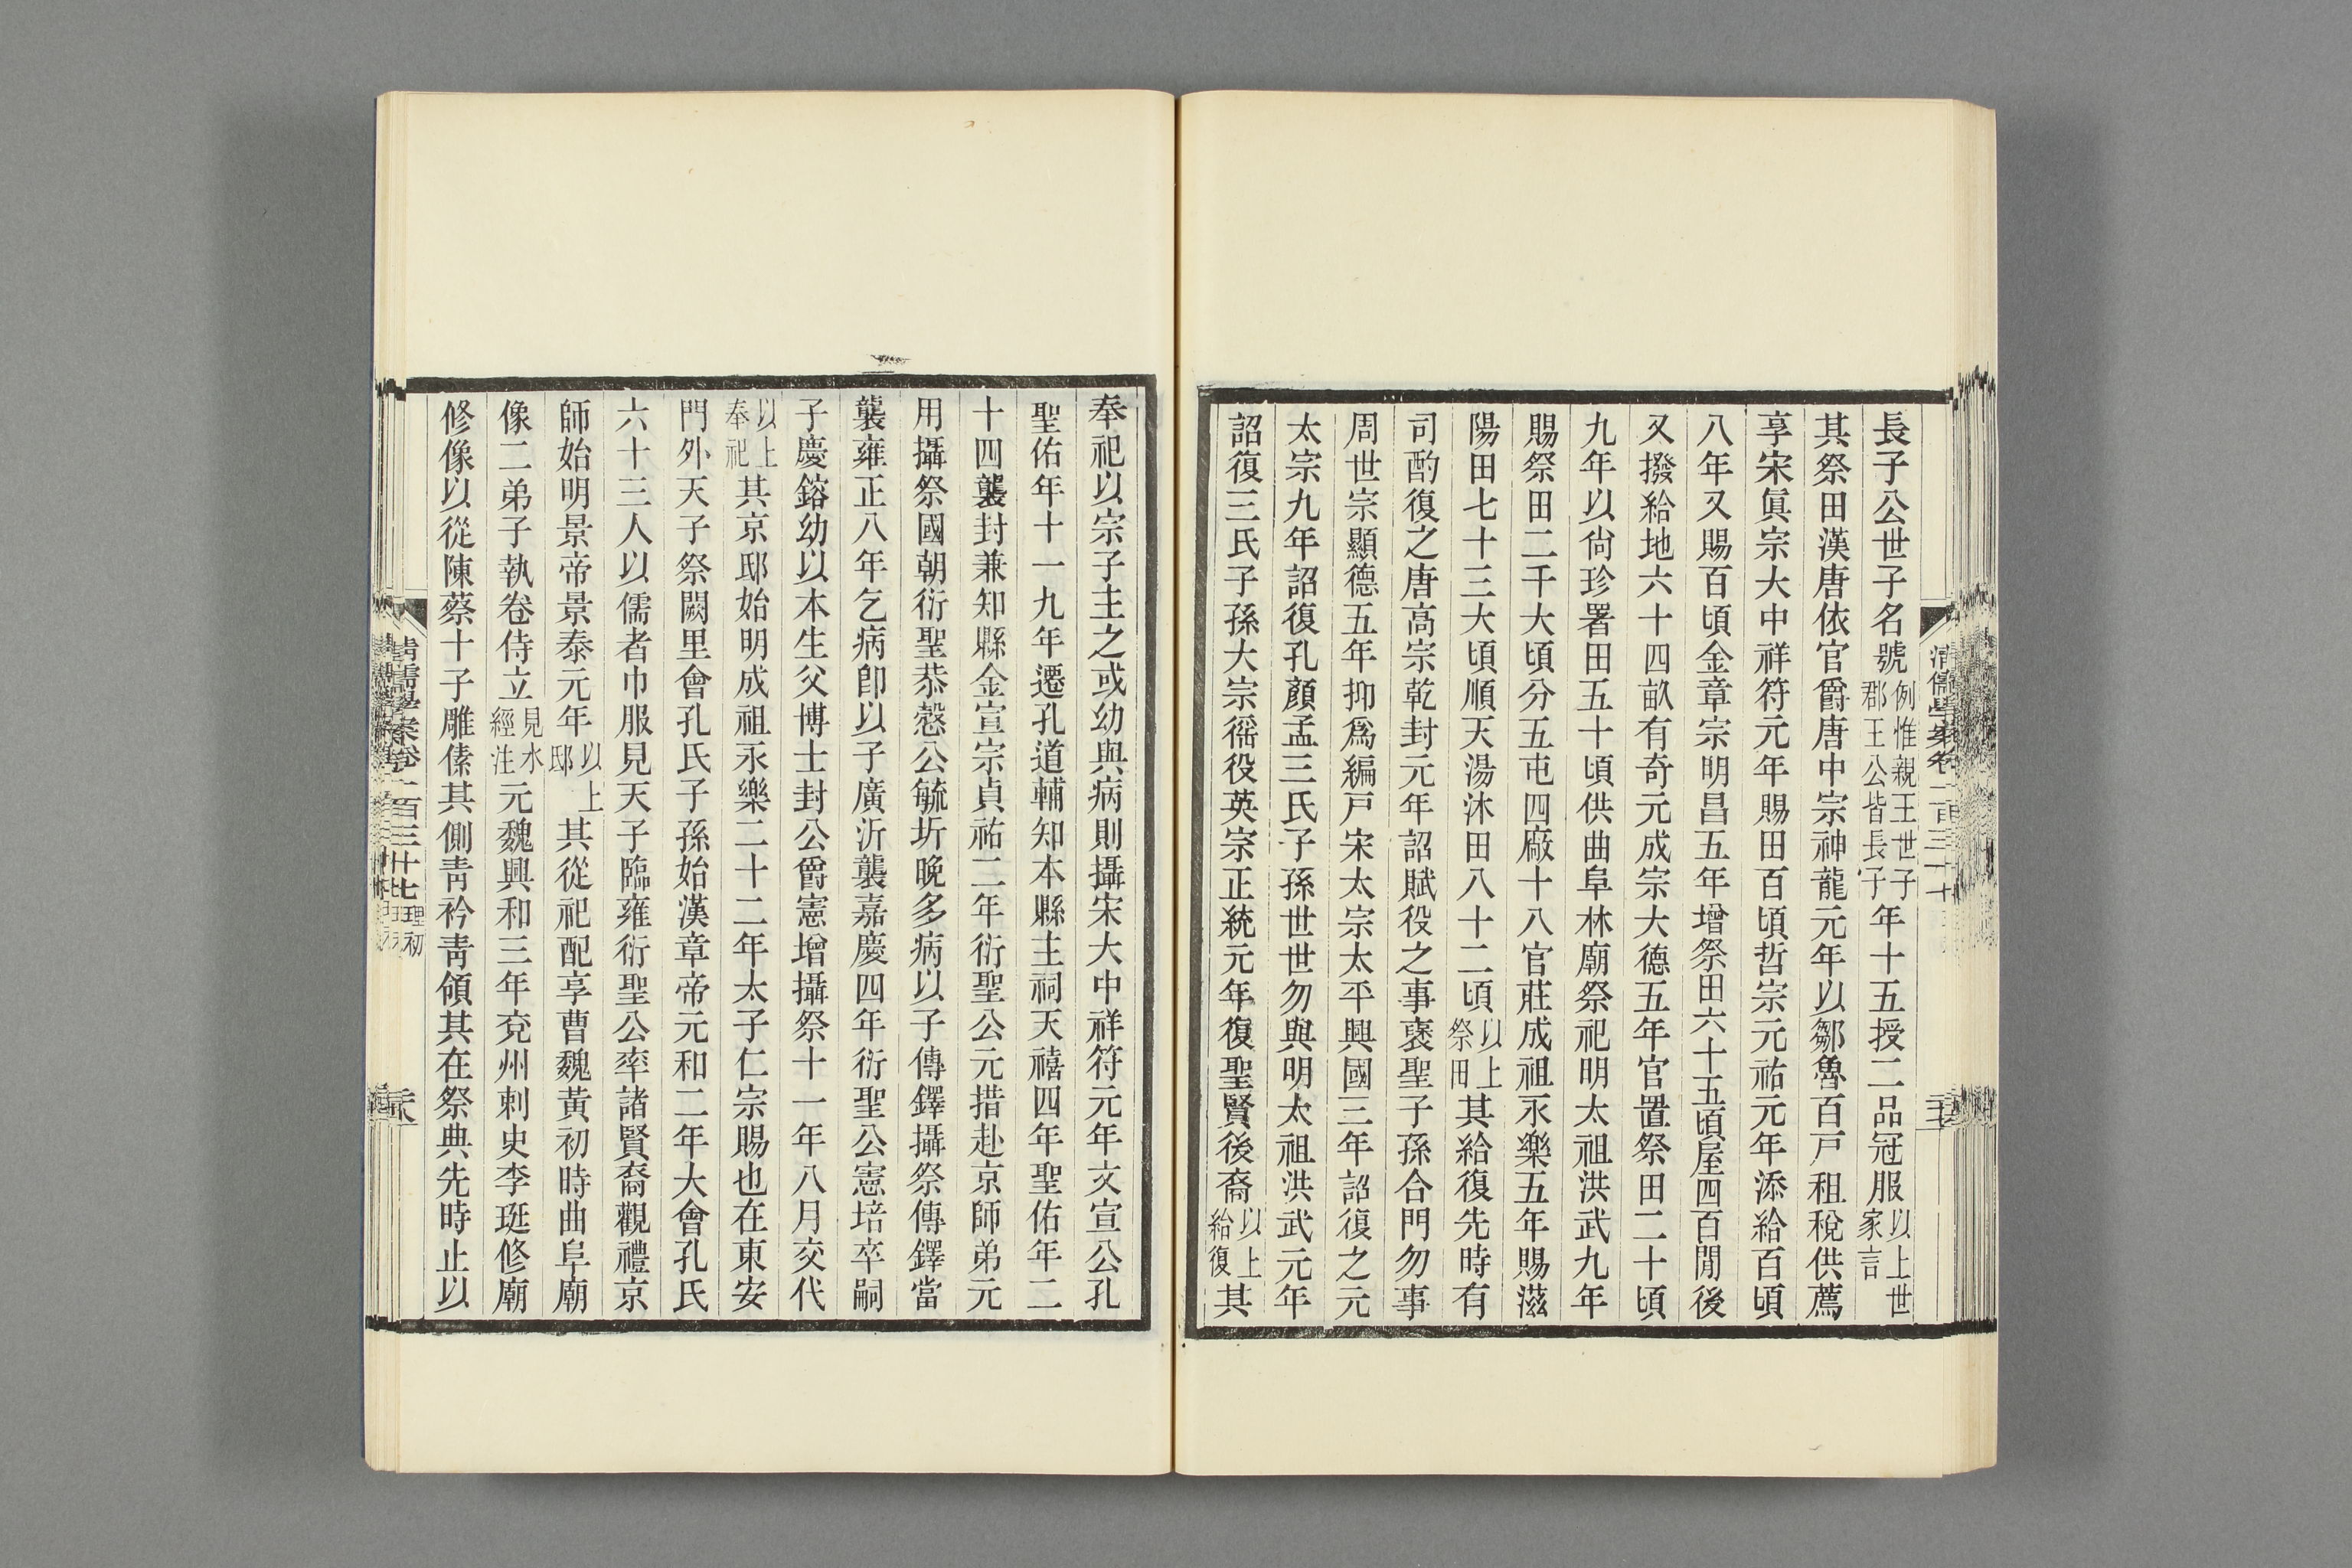 長子公世子名號例惟親王世子郡王公皆長子年十五授二品冠服以上世家言
其祭田漢唐依官爵唐中宗神龍元年以鄒魯百戸租稅供薦
享宋眞宗大中祥符元年賜田百頃哲宗元祐元年添給百頃
八年又賜百頃金章宗明昌五年增祭田六十五頃屋四百閒後
又撥給地六十四畝有奇元成宗大德五年官置祭田二十頃
九年以尙珍署田五十頃供曲阜林廟祭祀明太祖洪武九年
賜祭田二千大頃分五屯四廠十八官莊成祖永樂五年賜滋
陽田七十三大頃順天湯沐田八十二頃以上祭田其給復先時有
司酌復之唐高宗乾封元年詔賦役之事褒聖子孫合門勿事
周世宗顯德五年抑爲編戸宋太宗太平興國三年詔復之元
太宗九年詔復孔顏孟三氏子孫世世勿與明太祖洪武元年
詔復三氏子孫大宗徭役英宗正統元年復聖賢後裔以上給復其
奉祀以宗子主之或幼與病則攝宋大中祥符元年文宣公孔
聖佑年十一九年遷孔道輔知本縣主祠天禧四年聖佑年二
十四襲封兼知縣金宣宗貞祐二年衍聖公元措赴京師弟元
用攝祭國朝衍聖恭愨公毓圻晚多病以子傳鐸攝祭傳鐸當
襲雍正八年乞病卽以子廣沂襲嘉慶四年衍聖公憲培卒嗣
子慶鎔幼以本生父博士封公爵憲增攝祭十一年八月交代
以上奉祀其京邸始明成祖永樂二十二年太子仁宗賜也在東安
門外天子祭闕里會孔氏子孫始漢章帝元和二年大會孔氏
六十三人以儒者巾服見天子臨雍衍聖公率諸賢裔觀禮京
師始明景帝景泰元年以上邸其從祀配享曹魏黃初時曲阜廟
像二弟子執卷侍立見水經注元魏興和三年兗州刺史李珽修廟
修像以從陳蔡十子雕傃其側靑衿靑領其在祭典先時止以
清儒學案卷一百三十七 理初